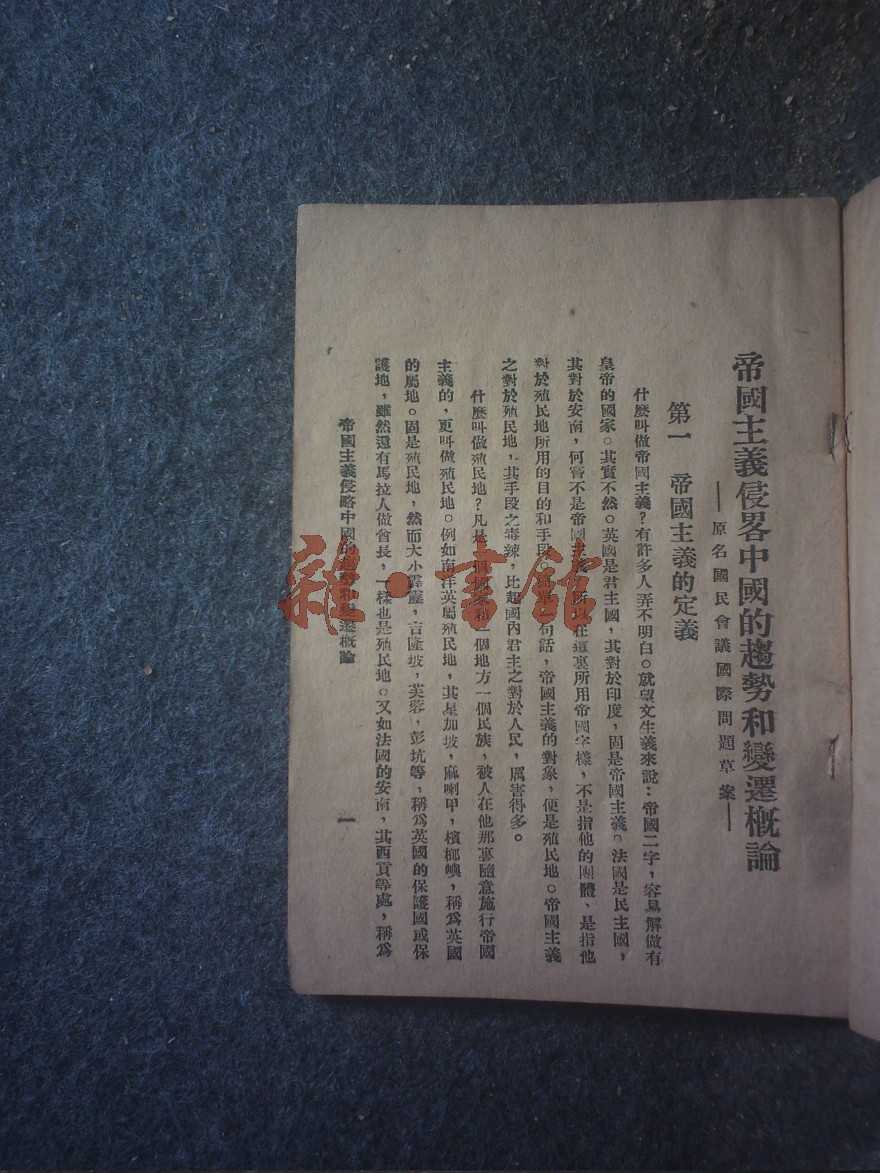 帝國主義侵畧中國的趨勢和變遷概論
——原名國民會議國際問題草案——
第一 帝國主義的定義
什麼叫做帝國主義?有許多人弄不明白。就望文生義來說:帝國二字,容易解做有
皇帝的國家。其實不然。英國是君主國,其對於印度,固是帝國主義。法國是民主國,
其對於安南,何嘗不是帝國主義。所以在這裏所用帝國字樣,不是指他的團體,是指他
對於殖民地所用的目的和手段。句話,帝國主義的對象,便是殖民地。帝國主義
之對於殖民地,其手段之毒辣,比起國內君主之對於人民,厲害得多。
什麼叫做殖民地?凡是一個國家和一個地方一個民族,被人在他那裏隨意施行帝國
主義的,更叫做殖民地。例如南洋英屬殖民地,其星加坡,麻喇甲,檳榔嶼,稱爲英國
的屬地。固是殖民地,然而大小霹靂,吉隆坡,芙蓉,彭坑等,稱爲英國的保護國或保
護地,雖然還有馬拉人做酋長,一樣也是殖民地。又如法國的安南,其西貢等處,稱爲
帝國主義侵略中國的趨勢和變遷概論
一
雜·書館